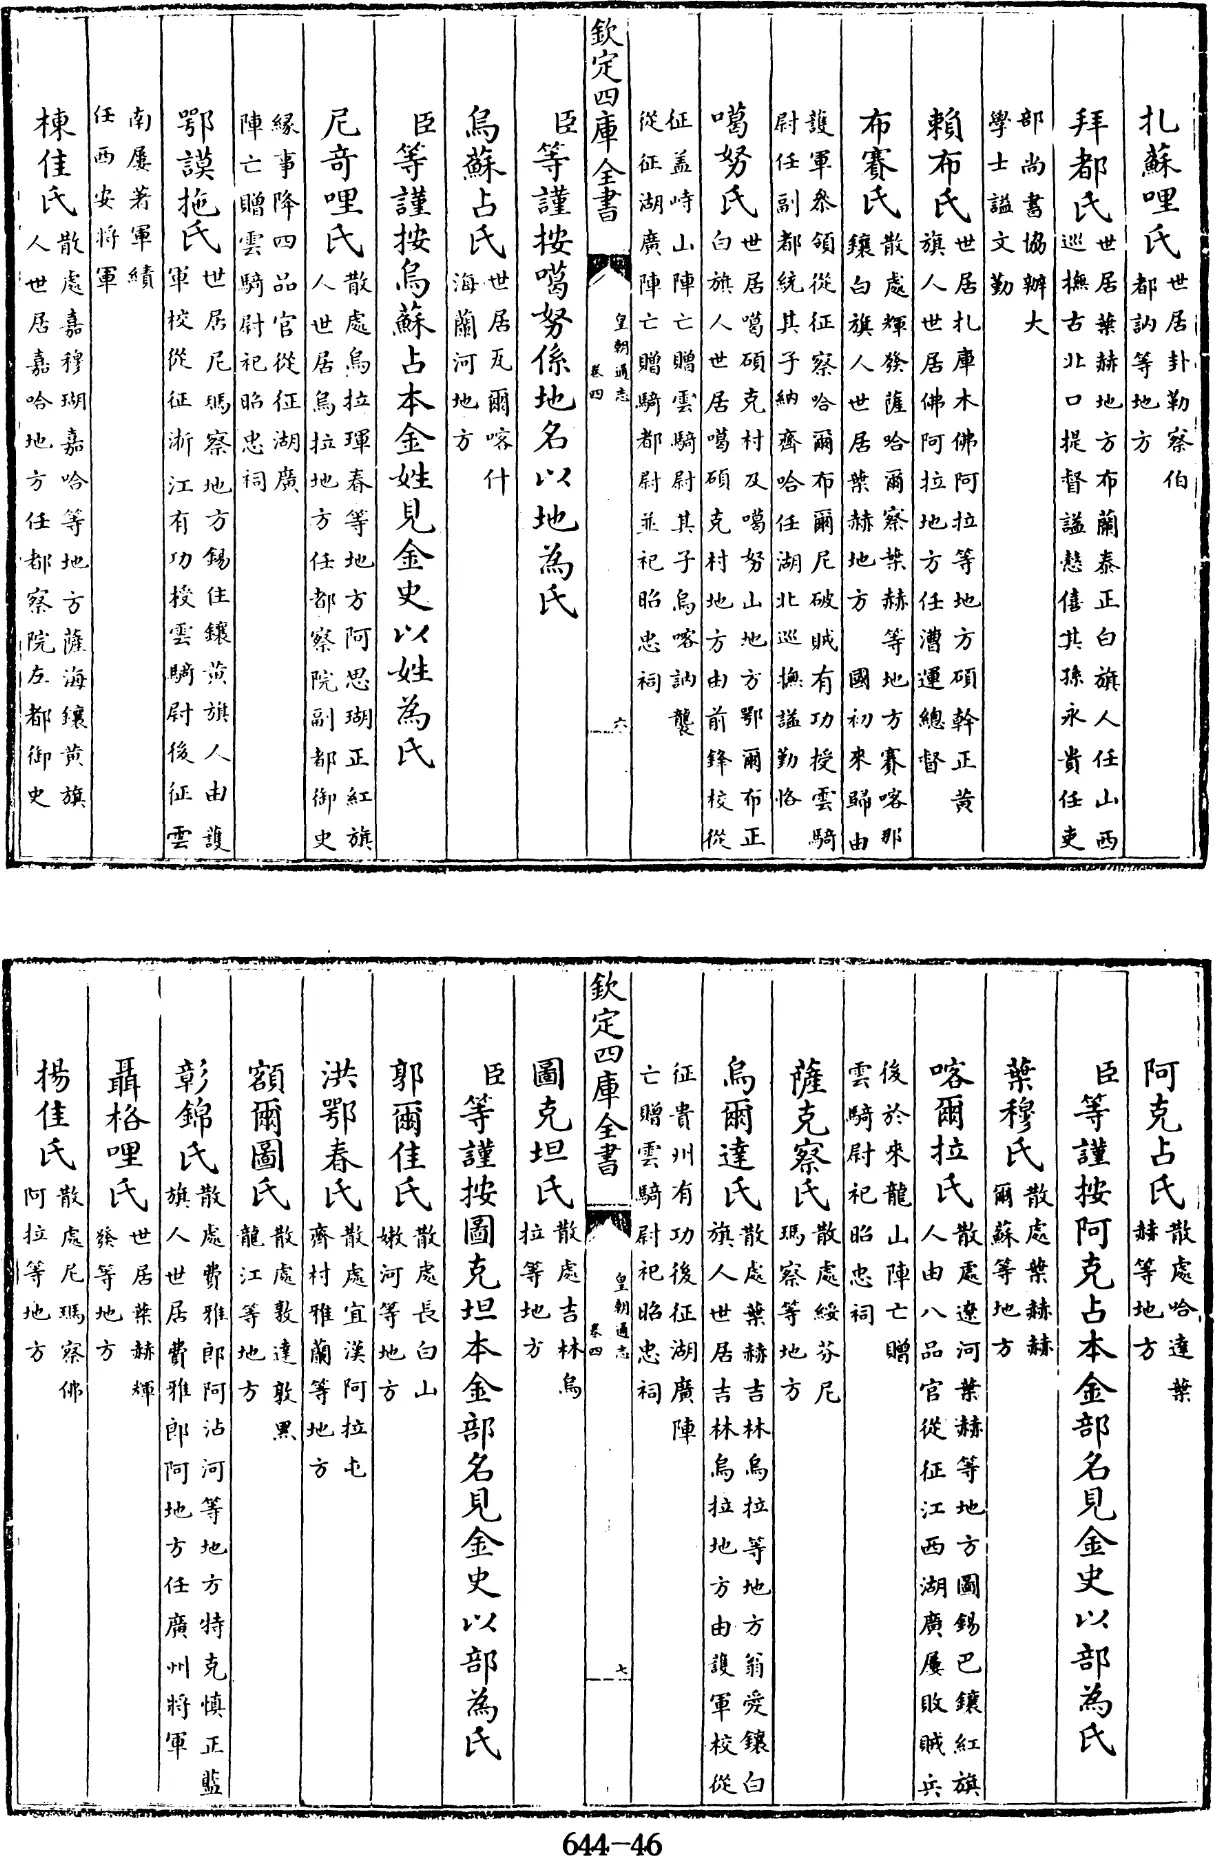 扎蘇哩氏世居卦勒察伯都訥等地方
拜都氏世居葉赫地方布蘭泰正白旗人任山西巡撫古北口提督謚慤僖其孫永貴任吏
部尚書協辦大學士謚文勤
賴布氏世居扎庫木佛阿拉等地方碩幹正黃旗人世居佛阿拉地方任漕運總督
布賽氏散處輝發薩哈爾察葉赫等地方賽喀那鑲白旗人世居葉赫地方　國初來歸由
護軍叅領從征察哈爾布爾尼破賊有功授雲騎尉任副都統其子納齊哈任湖北巡撫謚勤恪
噶努氏世居噶碩克村及噶努山地方鄂爾布正白旗人世居噶碩克村地方由前鋒校從
征盖峙山陣亡贈雲騎尉其子烏喀訥襲從征湖廣陣亡贈騎都尉並祀昭忠祠
欽定四庫全書　皇朝通志　卷四　六
臣等謹按噶努係地名以地為氏
烏蘇占氏世居瓦爾喀什海蘭河地方
臣等謹按烏蘇占本金姓見金史以姓為氏
尼奇哩氏散處烏拉琿春等地方阿思瑚正紅旗人世居烏拉地方任都察院副都御史
緣事降四品官從征湖廣陣亡贈雲騎尉祀昭忠祠
鄂謨拖氏世居尼瑪察地方錫住鑲黃旗人由護軍校從征浙江有功授雲騎尉後征雲
南屢著軍績任西安將軍
棟佳氏散處嘉穆瑚嘉哈等地方薩海鑲黃旗人世居嘉哈地方任都察院左都御史
阿克占氏散處哈達葉赫等地方
臣等謹按阿克占本金部名見金史以部為氏
葉穆氏散處葉赫赫爾蘇等地方
喀爾拉氏散處遼河葉赫等地方圖錫巴鑲紅旗人由八品官從征江西湖廣屢敗賊兵
後於來龍山陣亡贈雲騎尉祀昭忠祠
薩克察氏散處綏芬尼瑪察等地方
烏爾達氏散處葉赫吉林烏拉等地方翁愛鑲白旗人世居吉林烏拉地方由護軍校從
征貴州有功後征湖廣陣亡贈雲騎尉祀昭忠祠
欽定四庫全書　皇朝通志　卷四　七
圖克坦氏散處吉林烏拉等地方
臣等謹按圖克坦本金部名見金史以部為氏
郭爾佳氏散處長白山嫩河等地方
洪鄂春氏散處宜漢阿拉屯齊村雅蘭等地方
額爾圖氏散處敦達敦黑龍江等地方
彰錦氏散處費雅郎阿沾河等地方特克慎正藍旗人世居費雅郎阿地方任廣州將軍
聶格哩氏世居葉赫輝發等地方
揚佳氏散處尼瑪察佛阿拉等地方
644-46